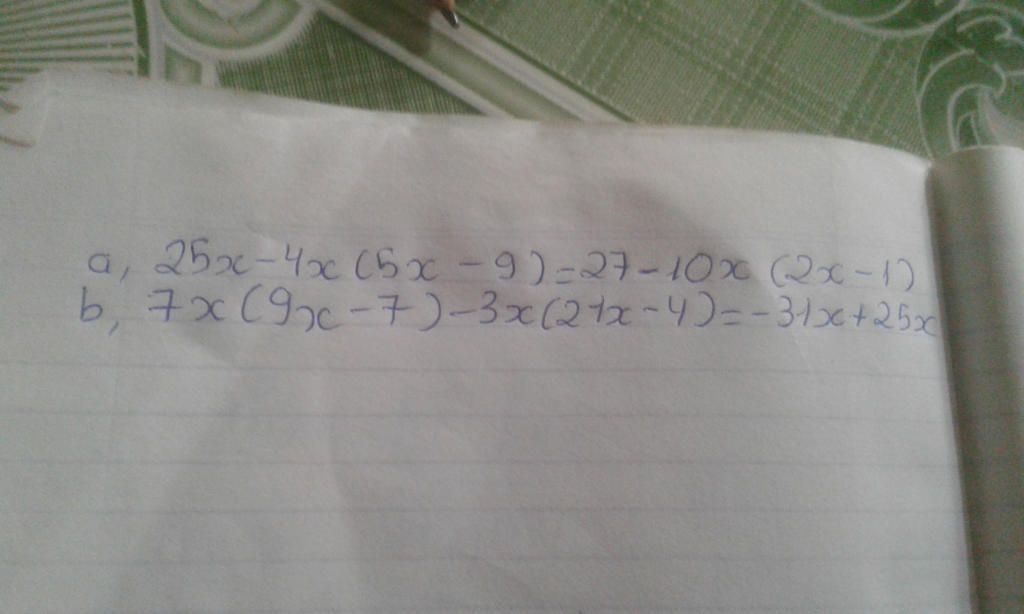 a, 25x-4x(5x-9)=27-10x(2x-1)
b, 7x(9x-7)-3x(21x-4)=-31x+25x